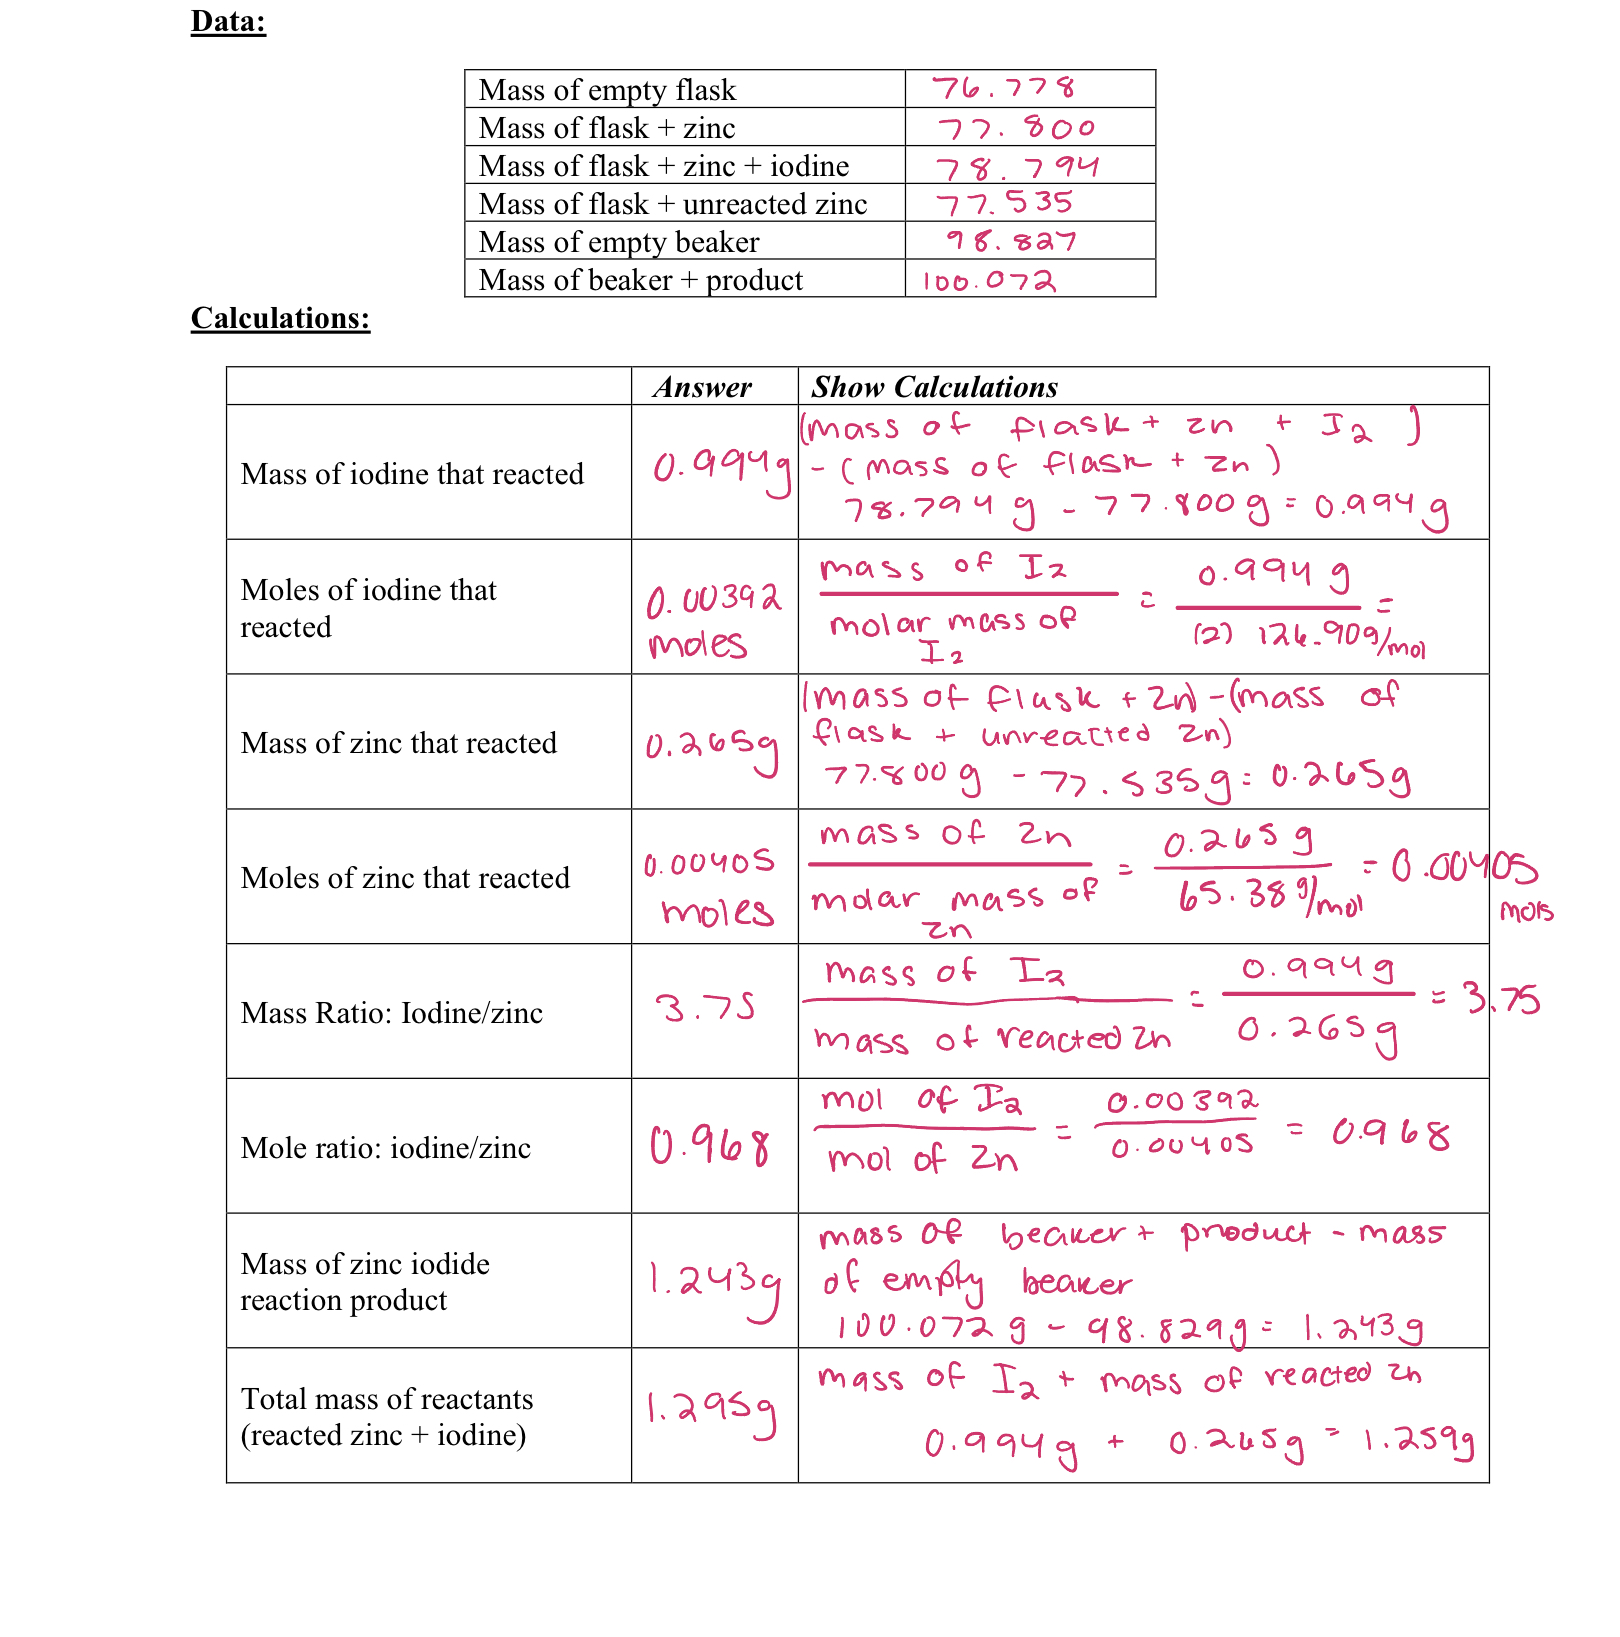 Data:
Mass of empty flask 76.778
Mass of flask + zinc 77.800
Mass of flask + zinc + iodine 78.794
Mass of flask + unreacted zinc 77.535
Mass of empty beaker 98.827
Mass of beaker + product 100.072
Calculations:
Answer Show Calculations
Mass of iodine that reacted
0.994g
(mass of flask + zn + I2)
- (mass of flask + zn)
78.794 g - 77.800 g = 0.994 g
Moles of iodine that
reacted
0.00392
moles
mass of I2
molar mass of
I2
=
0.994 g
(2) 126.90g/mol
=
Mass of zinc that reacted
0.265g
(mass of flask + zn) - (mass of
flask + unreacted zn)
77.800 g - 77.535g = 0.265g
Moles of zinc that reacted
0.00405
moles
mass of zn
molar mass of
zn
=
0.265 g
65.38 g/mol
= 0.00405
mols
Mass Ratio: Iodine/zinc
3.75
mass of I2
mass of reacted zn
=
0.994g
0.265g
= 3.75
Mole ratio: iodine/zinc
0.968
mol of I2
mol of zn
=
0.00392
0.00405
= 0.968
Mass of zinc iodide
reaction product
1.243g
mass of beaker + product - mass
of empty beaker
100.072 g - 98.829g = 1.243g
Total mass of reactants
(reacted zinc + iodine)
1.295g
mass of I2 + mass of reacted zn
0.994g + 0.265g = 1.259g